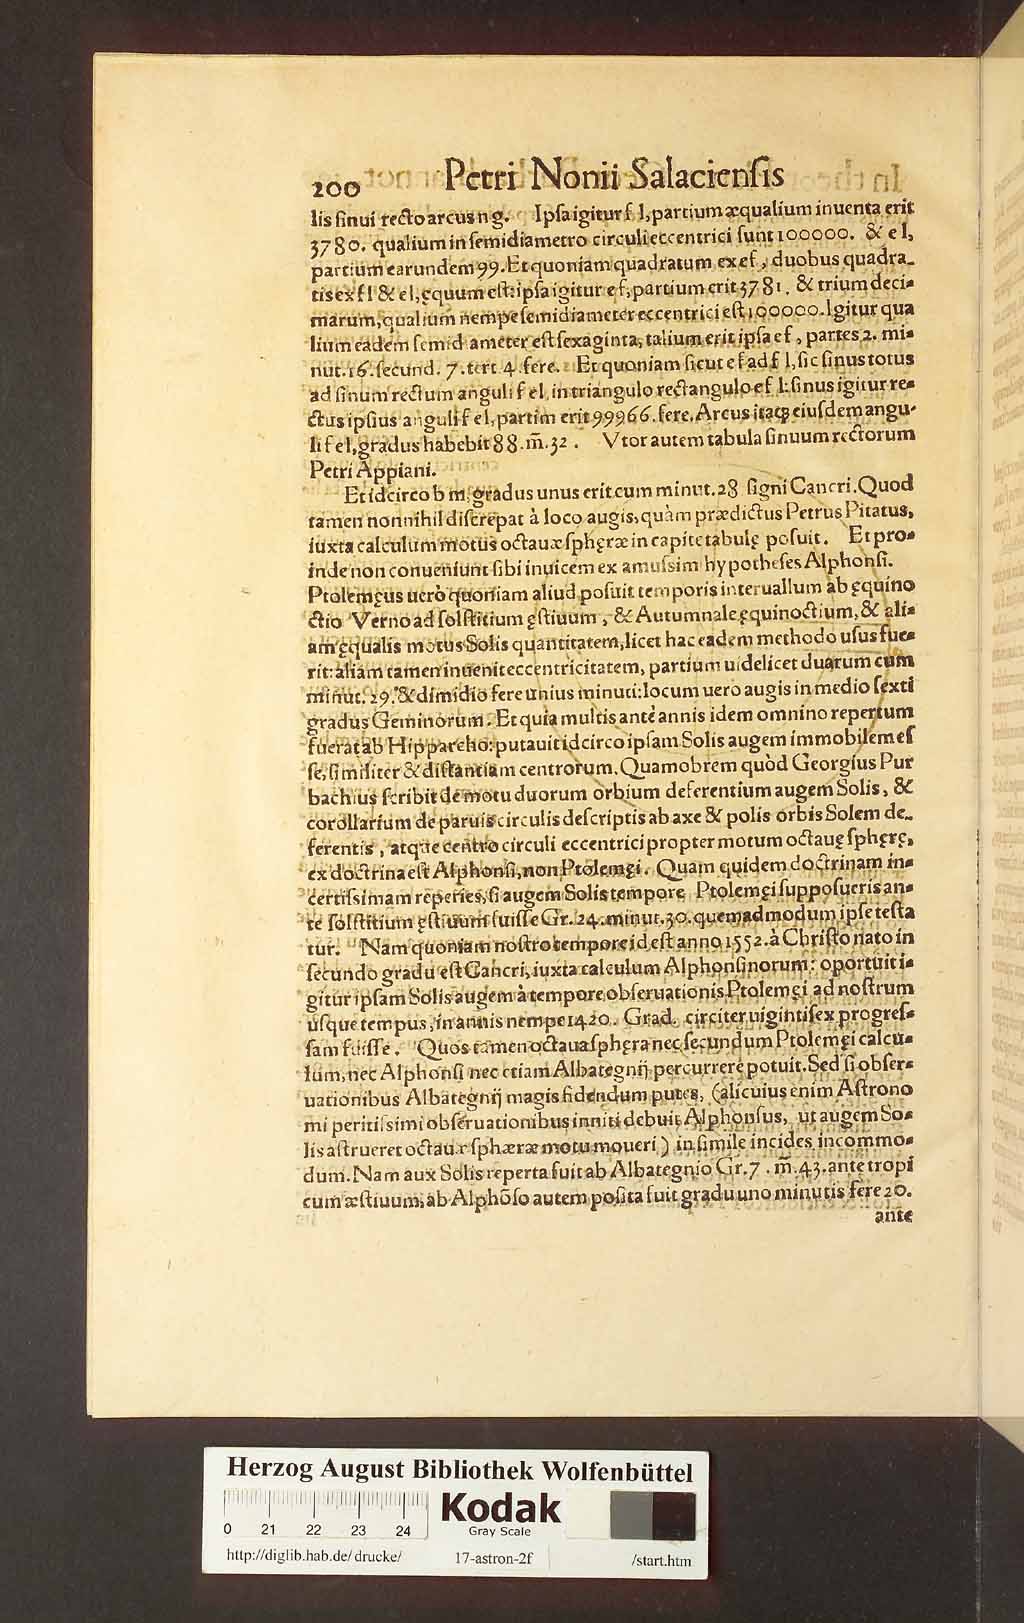 200 Petri Nonii Salaciensis
lis sinui recto arcus n g. Ipsa igitur f l, partium æqualium inuenta erit
3780. qualium in semidiametro circuli eccentrici sunt 100000. & e l,
partium earundem 99. Et quoniam quadratum ex e f, duobus quadra-
tis ex f l & e l, ęquum est: ipsa igitur e f, partium erit 3781. & trium deci-
marum, qualium nempe semidiameter eccentrici est 100000. Igitur qua
lium eadem semid ameter est sexaginta, talium erit ipsa e f, partes 2. mi-
nut. 16. secund. 7. tert. 4. fere. Et quoniam sicut e f ad f l, sic sinus totus
ad sinum rectum anguli f e l, in triangulo rectangulo e f l: sinus igitur re-
ctus ipsius anguli f e l, partim erit 99966. fere. Arcus itaq; eiusdem angu-
li f e l, gradus habebit 88. m̄. 32. Vtor autem tabula sinuum rectorum
Petri Appiani.
Et idcirco b m, gradus unus erit cum minut. 28 signi Cancri. Quod
tamen nonnihil discrepat à loco augis, quàm prædictus Petrus Pitatus,
iuxta calculum motus octauæ sphęræ in capite tabulę posuit. Et pro-
inde non conueniunt sibi inuicem ex amussim hypotheses Alphonsi.
Ptolemęus uerò quoniam aliud posuit temporis interuallum ab ęquino
ctio Verno ad solstitium ęstiuum, & Autumnale ęquinoctium, & ali-
am ęqualis motus Solis quantitatem, licet hac eadem methodo usus fue-
rit: aliam tamen inuenit eccentricitatem, partium uidelicet duarum cum
minut. 29. & dimidio fere unius minuti: locum uero augis in medio sexti
gradus Geminorum. Et quia multis antè annis idem omnino repertum
fuerat ab Hipparcho: putauit idcirco ipsam Solis augem immobilem es
se, similiter & distantiam centrorum. Quamobrem quòd Georgius Pur
bachius scribit de motu duorum orbium deferentium augem Solis, &
corollarium de paruis circulis descriptis ab axe & polis orbis Solem de-
ferentis, atque centro circuli eccentrici propter motum octauę sphęrę,
ex doctrina est Alphonsi, non Ptolemęi. Quam quidem doctrinam in-
certissimam reperies, si augem Solis tempore Ptolemęi supposueris an-
te solstitium ęstiuum fuisse Gr. 24. minut. 30. quemadmodum ipse testa
tur. Nam quoniam nostro tempore id est anno 1552. à Christo nato in
secundo gradu est Cancri, iuxta calculum Alphonsinorum: oportuit i-
gitur ipsam Solis augem à tempore obseruationis Ptolemęi ad nostrum
usque tempus, in annis nempe 1420. Grad. circiter uigintisex progres-
sam fuisse. Quos tamen octaua sphęra nec secundum Ptolemęi calcu-
lum, nec Alphonsi nec etiam Albategnij percurrere potuit. Sed si obser-
uationibus Albategnij magis fidendum putes, (alicuius enim Astrono
mi peritissimi obseruationibus inniti debuit Alphonsus, ut augem So-
lis astrueret octauæ sphæræ motu moueri) in simile incides incommo-
dum. Nam aux Solis reperta fuit ab Albategnio Gr. 7. m̄. 43. ante tropi
cum æstiuum, ab Alphōso autem posita fuit gradu uno minutis fere 20.
ante
Herzog August Bibliothek Wolfenbüttel
Kodak
Gray Scale
0 21 22 23 24
http://diglib.hab.de/drucke/ 17-astron-2f /start.htm